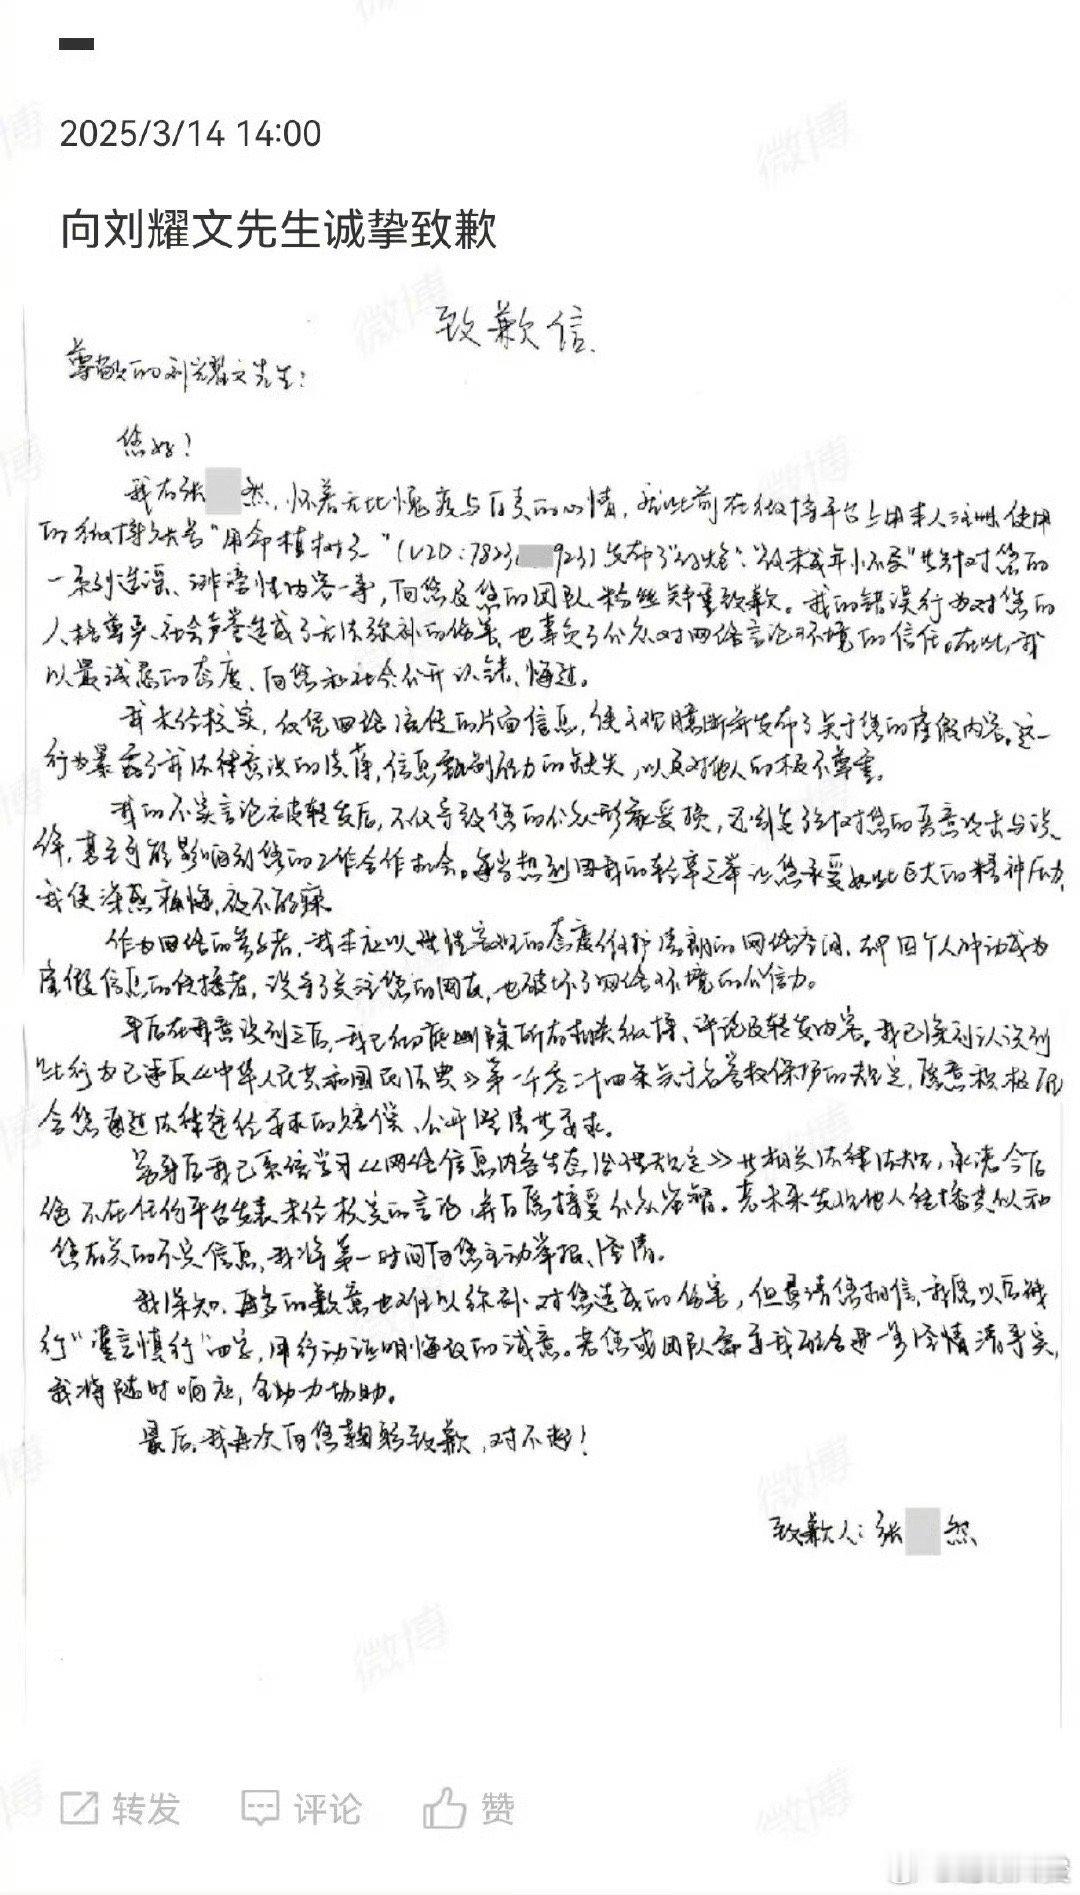 2025/3/14 14:00
向刘耀文先生诚挚致歉
致歉信
尊敬的刘耀文先生:
您好!
我有张 然,怀着无比愧疚与自责的心情,就此前在微博平台上用本人注册使用
的微博账号"用命植树 "(UID:7823 923)发布了 "被未成年 "等针对您的
一系列造谣、诽谤性内容一事,向您及您的团队、粉丝郑重致歉。我的错误行为对您的
人格尊严、社会声誉造成了无法弥补的伤害,也辜负了公众对网络言论环境的信任。在此,我
以最诚恳的态度,向您和社会公开认错、悔过。
我未经核实,仅凭网络流传的片面信息,便主观臆断并发布了关于您的虚假内容。这一
行为暴露了我法律意识的淡薄,信息甄别能力的缺失,以及对他人的极不尊重。
我的不实言论被转发后,不仅导致您的公众形象受损,还引发针对您的恶意攻击与误
解,甚至可能影响到您的工作合作机会。每当想到因我的轻率之举让您承受如此巨大的精神压力,
我便深感痛悔,夜不能寐。
作为网络的参与者,我本应以理性客观的态度维护清朗的网络空间,却因个人冲动成为
虚假信息的传播者,误导了关注您的网友,也破坏了网络环境的公信力。
事后在我意识到之后,我已彻底删除所有相关微博、评论及转发内容。我已深刻认识到
此行为已违反《中华人民共和国民法典》第一千零二十四条关于名誉权保护的规定,愿意积极配
合您通过法律途径要求的赔偿、公开澄清等要求。
另事后我已系统学习《网络信息内容生态治理规定》等相关法律法规,承诺今后
绝不在任何平台发表未经核实的言论,并自愿接受公众监督。若未来发现他人传播类似和
您有关的不实信息,我将第一时间向您主动举报、澄清。
我深知,再多的歉意也难以弥补对您造成的伤害,但恳请您相信,我愿以后践
行"谨言慎行"四字,用行动证明悔改的诚意。若您或团队需要我配合进一步澄清事实,
我将随时响应,全力协助。
最后,我再次向您鞠躬致歉,对不起!
致歉人:张 然
转发 评论 赞
微博